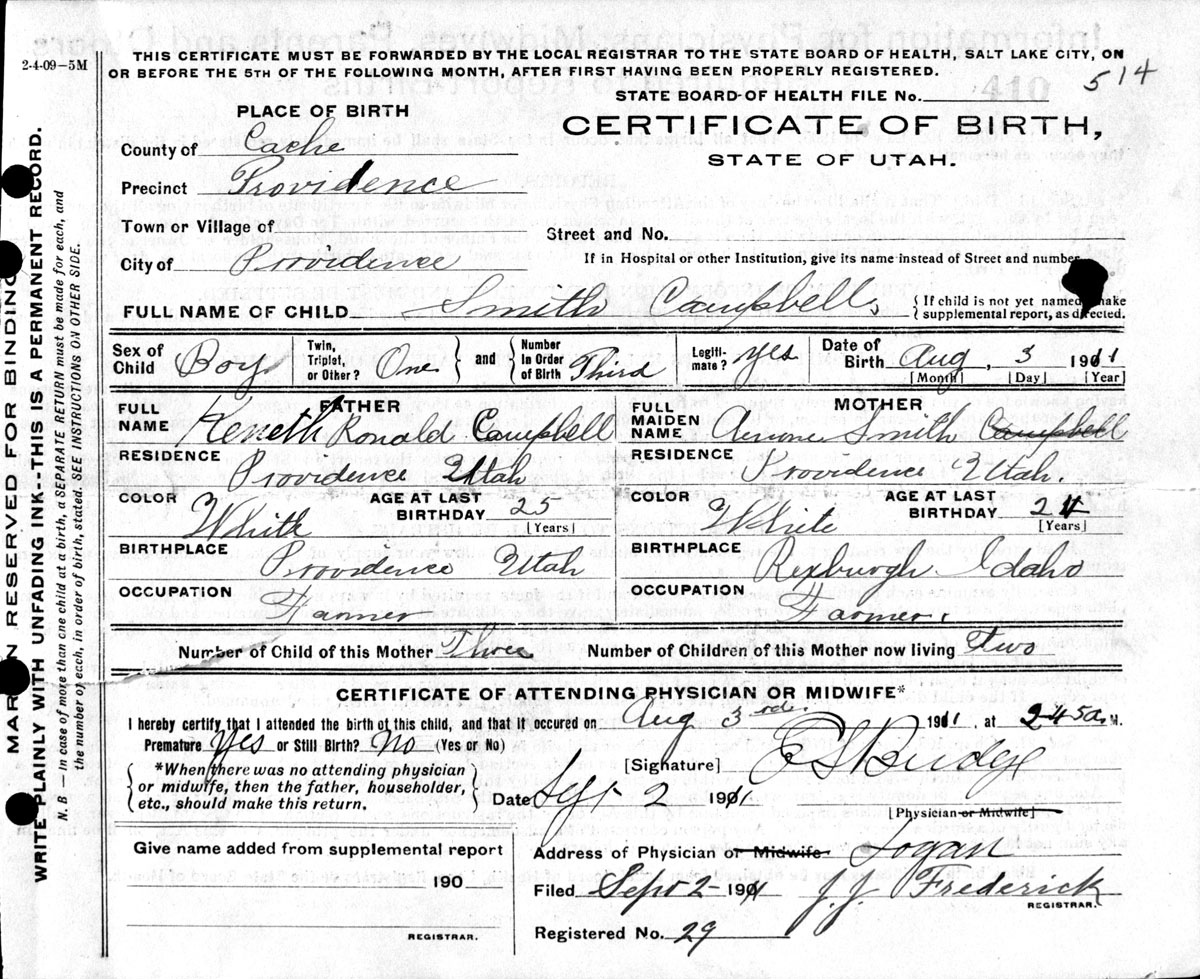 2-4-09-5M
THIS CERTIFICATE MUST BE FORWARDED BY THE LOCAL REGISTRAR TO THE STATE BOARD OF HEALTH, SALT LAKE CITY, ON
OR BEFORE THE 5TH OF THE FOLLOWING MONTH, AFTER FIRST HAVING BEEN PROPERLY REGISTERED.
514
STATE BOARD OF HEALTH FILE No. 410
PLACE OF BIRTH
CERTIFICATE OF BIRTH,
STATE OF UTAH.
County of Cache
Precinct Providence
Town or Village of
Street and No.
City of Providence
If in Hospital or other Institution, give its name instead of Street and number.
FULL NAME OF CHILD Smith Campbell
{If child is not yet named make
supplemental report, as directed.
Sex of Child Boy
Twin, Triplet, or Other? One
and
Number In Order of Birth Third
Legiti-mate? yes
Date of Birth Aug 3 1911
[Month] [Day] [Year]
FATHER
FULL NAME Keneth Ronald Campbell
RESIDENCE Providence Utah
COLOR White
AGE AT LAST BIRTHDAY 25
[Years]
BIRTHPLACE Providence Utah
OCCUPATION Farmer
MOTHER
FULL MAIDEN NAME Smith Campbell
RESIDENCE Providence Utah.
COLOR White
AGE AT LAST BIRTHDAY 24
[Years]
BIRTHPLACE Rexburgh Idaho
OCCUPATION Farmer.
Number of Child of this Mother Three
Number of Children of this Mother now living Two
CERTIFICATE OF ATTENDING PHYSICIAN OR MIDWIFE*
I hereby certify that I attended the birth of this child, and that it occured on Aug 3rd. 1911 at 245a M.
Premature Yes or Still Birth? No (Yes or No)
*When there was no attending physician
or midwife, then the father, householder,
etc., should make this return.
[Signature] E S Budge
Date Sept 2 1911
[Physician or Midwife]
Give name added from supplemental report
190
REGISTRAR.
Address of Physician or Midwife Logan
Filed Sept 2 1911 J. J. Frederick
REGISTRAR.
Registered No. 29
MARGIN RESERVED FOR BINDING
WRITE PLAINLY WITH UNFADING INK--THIS IS A PERMANENT RECORD.
N. B — In case of more than one child at a birth, a SEPARATE RETURN must be made for each, and
the number of each, in order of birth, stated. SEE INSTRUCTIONS ON OTHER SIDE.